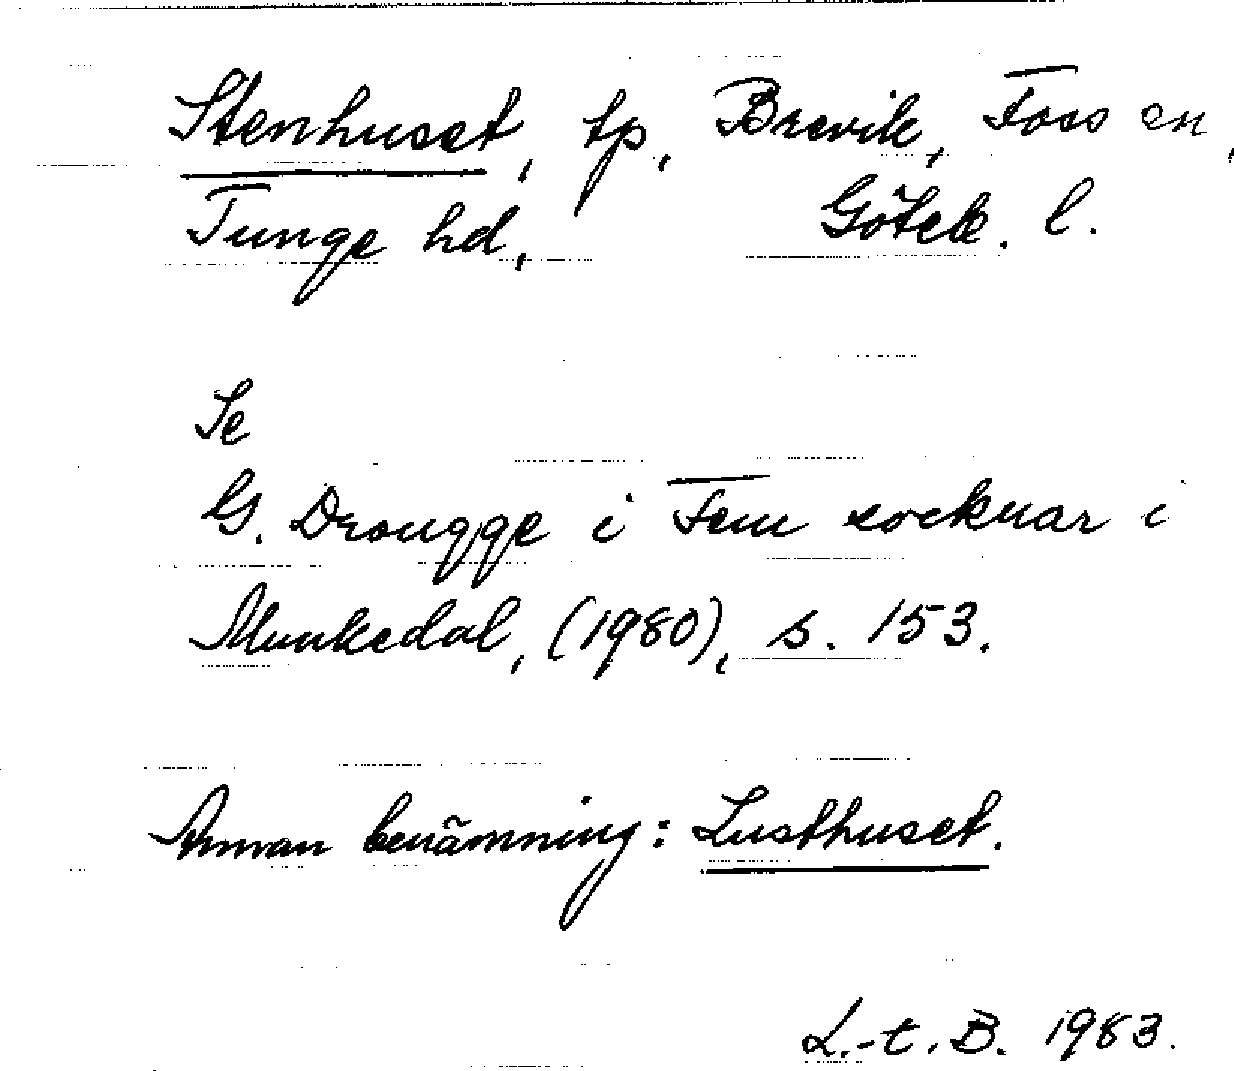 Stenhuset, tp, Brevik, Foss sn,
Tunge hd, Göteb. l.
Se
G. Drougge i Fem socknar i
Munkedal, (1980), s. 153.
Annan benämning: Lusthuset.
L.-t. B. 1983.